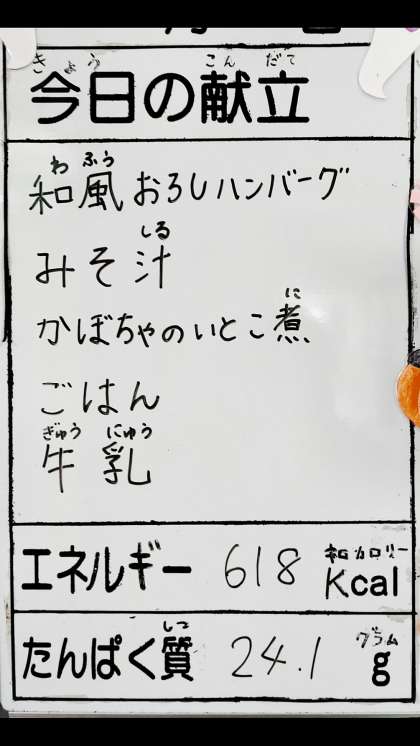 きょう こんだて
今日の献立
わ ふう
和風おろしハンバーグ
しる
みそ汁
に
かぼちゃのいとこ煮
ごはん
ぎゅう にゅう
牛乳
キロカロリー
エネルギー 618 Kcal
しつ グラム
たんぱく質 24.1 g